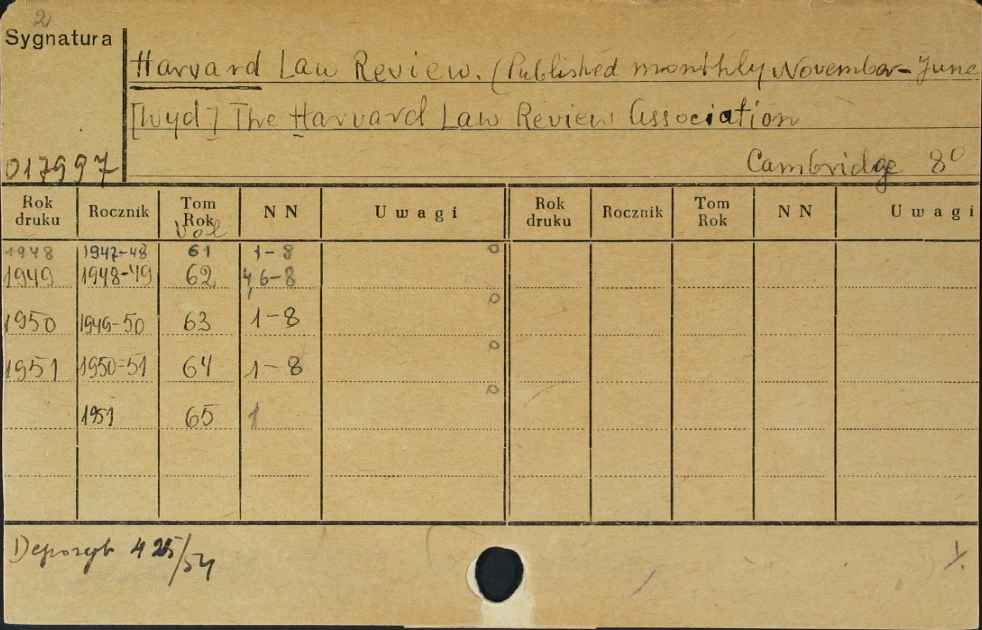 2
Sygnatura
Harvard Law Review. (Published monthly November-June
[wyd] The Harvard Law Review Association
017997 Cambridge 8°
Rok druku Rocznik Tom Rok Vol NN Uwagi Rok druku Rocznik Tom Rok NN Uwagi
1948 1947-48 61 1-8
1949 1948-49 62 4, 6-8
1950 1949-50 63 1-8
1951 1950-51 64 1-8
1951 65 1
Depozyt 425/54